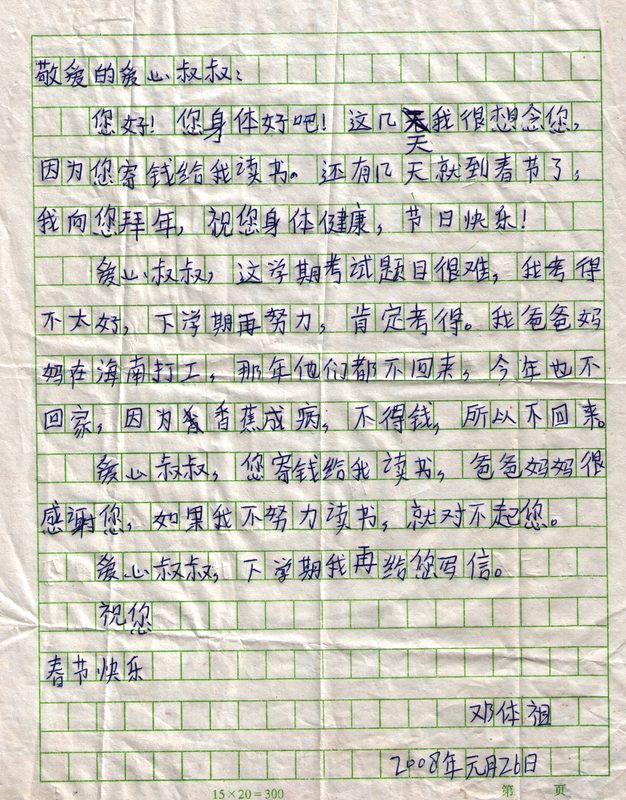 敬爱的爱心叔叔：
您好！您身体好吧！这几天我很想念您，
因为您寄钱给我读书。还有几天就到春节了，
我向您拜年，祝您身体健康，节日快乐！
爱心叔叔，这学期考试题目很难，我考得
不太好，下学期再努力，肯定考得。我爸爸妈
妈在海南打工，那年他们都不回来，今年也不
回家，因为香蕉成病，不得钱，所以不回来。
爱心叔叔，您寄钱给我读书，爸爸妈妈很
感谢您，如果我不努力读书，就对不起您。
爱心叔叔，下学期我再给您写信。
祝您
春节快乐
邓体祖
2008年元月26日
15×20=300 第 页